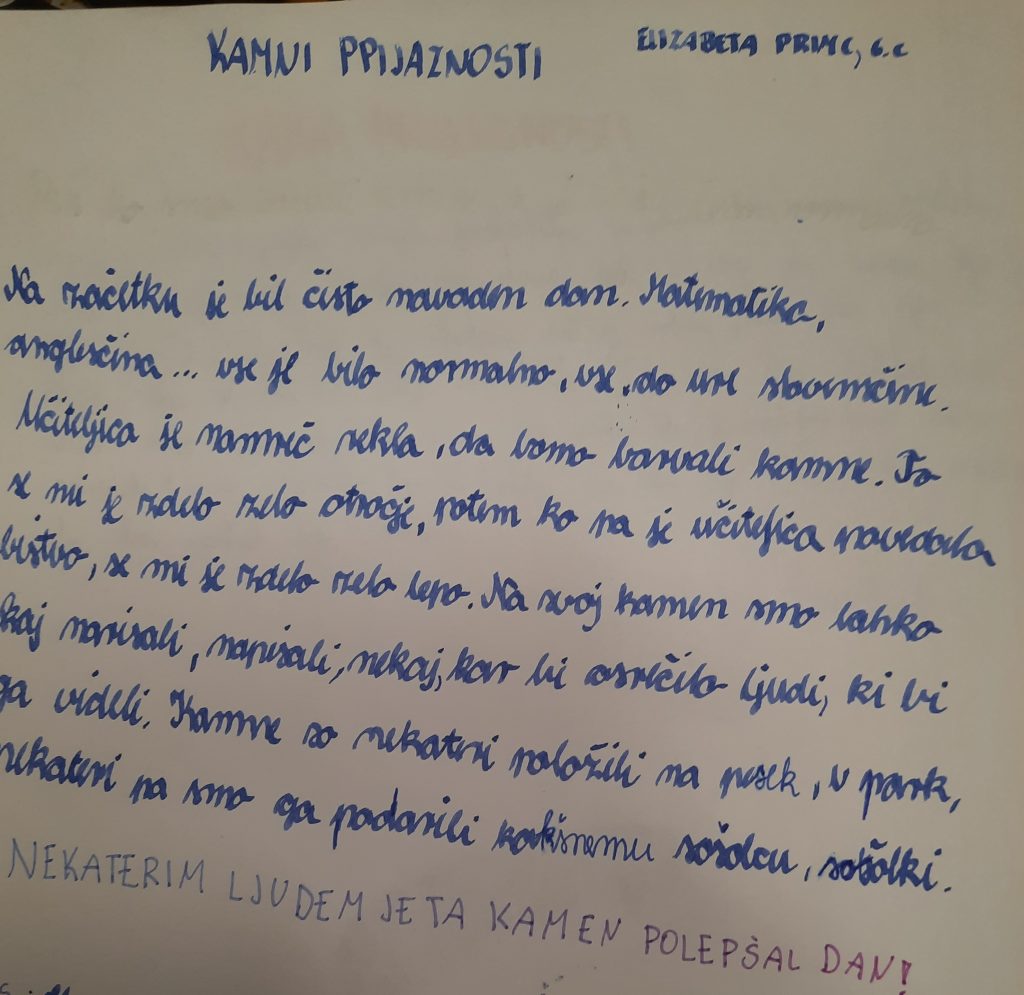 KAMNI PPIJAZNOSTI
ELIZABETA PRIMC, 6.c
Na začetku je bil čisto navaden dan. Matematika,
angleščina... vse je bilo normalno, vse, do ure slovenščine.
Učiteljica je namreč rekla, da bomo barvali kamne. To
se mi je zdelo zelo otročje, potem ko pa je učiteljica povedala
bistvo, se mi je zdelo zelo lepo. Na svoj kamen smo lahko
kaj narisali, napisali, nekaj, kar bi osrečilo ljudi, ki bi
ga videli. Kamne so nekateri položili na pesek, v park,
nekateri pa smo ga podarili kakšnemu sošolcu, sošolki.
NEKATERIM LJUDEM JE TA KAMEN POLEPŠAL DAN!